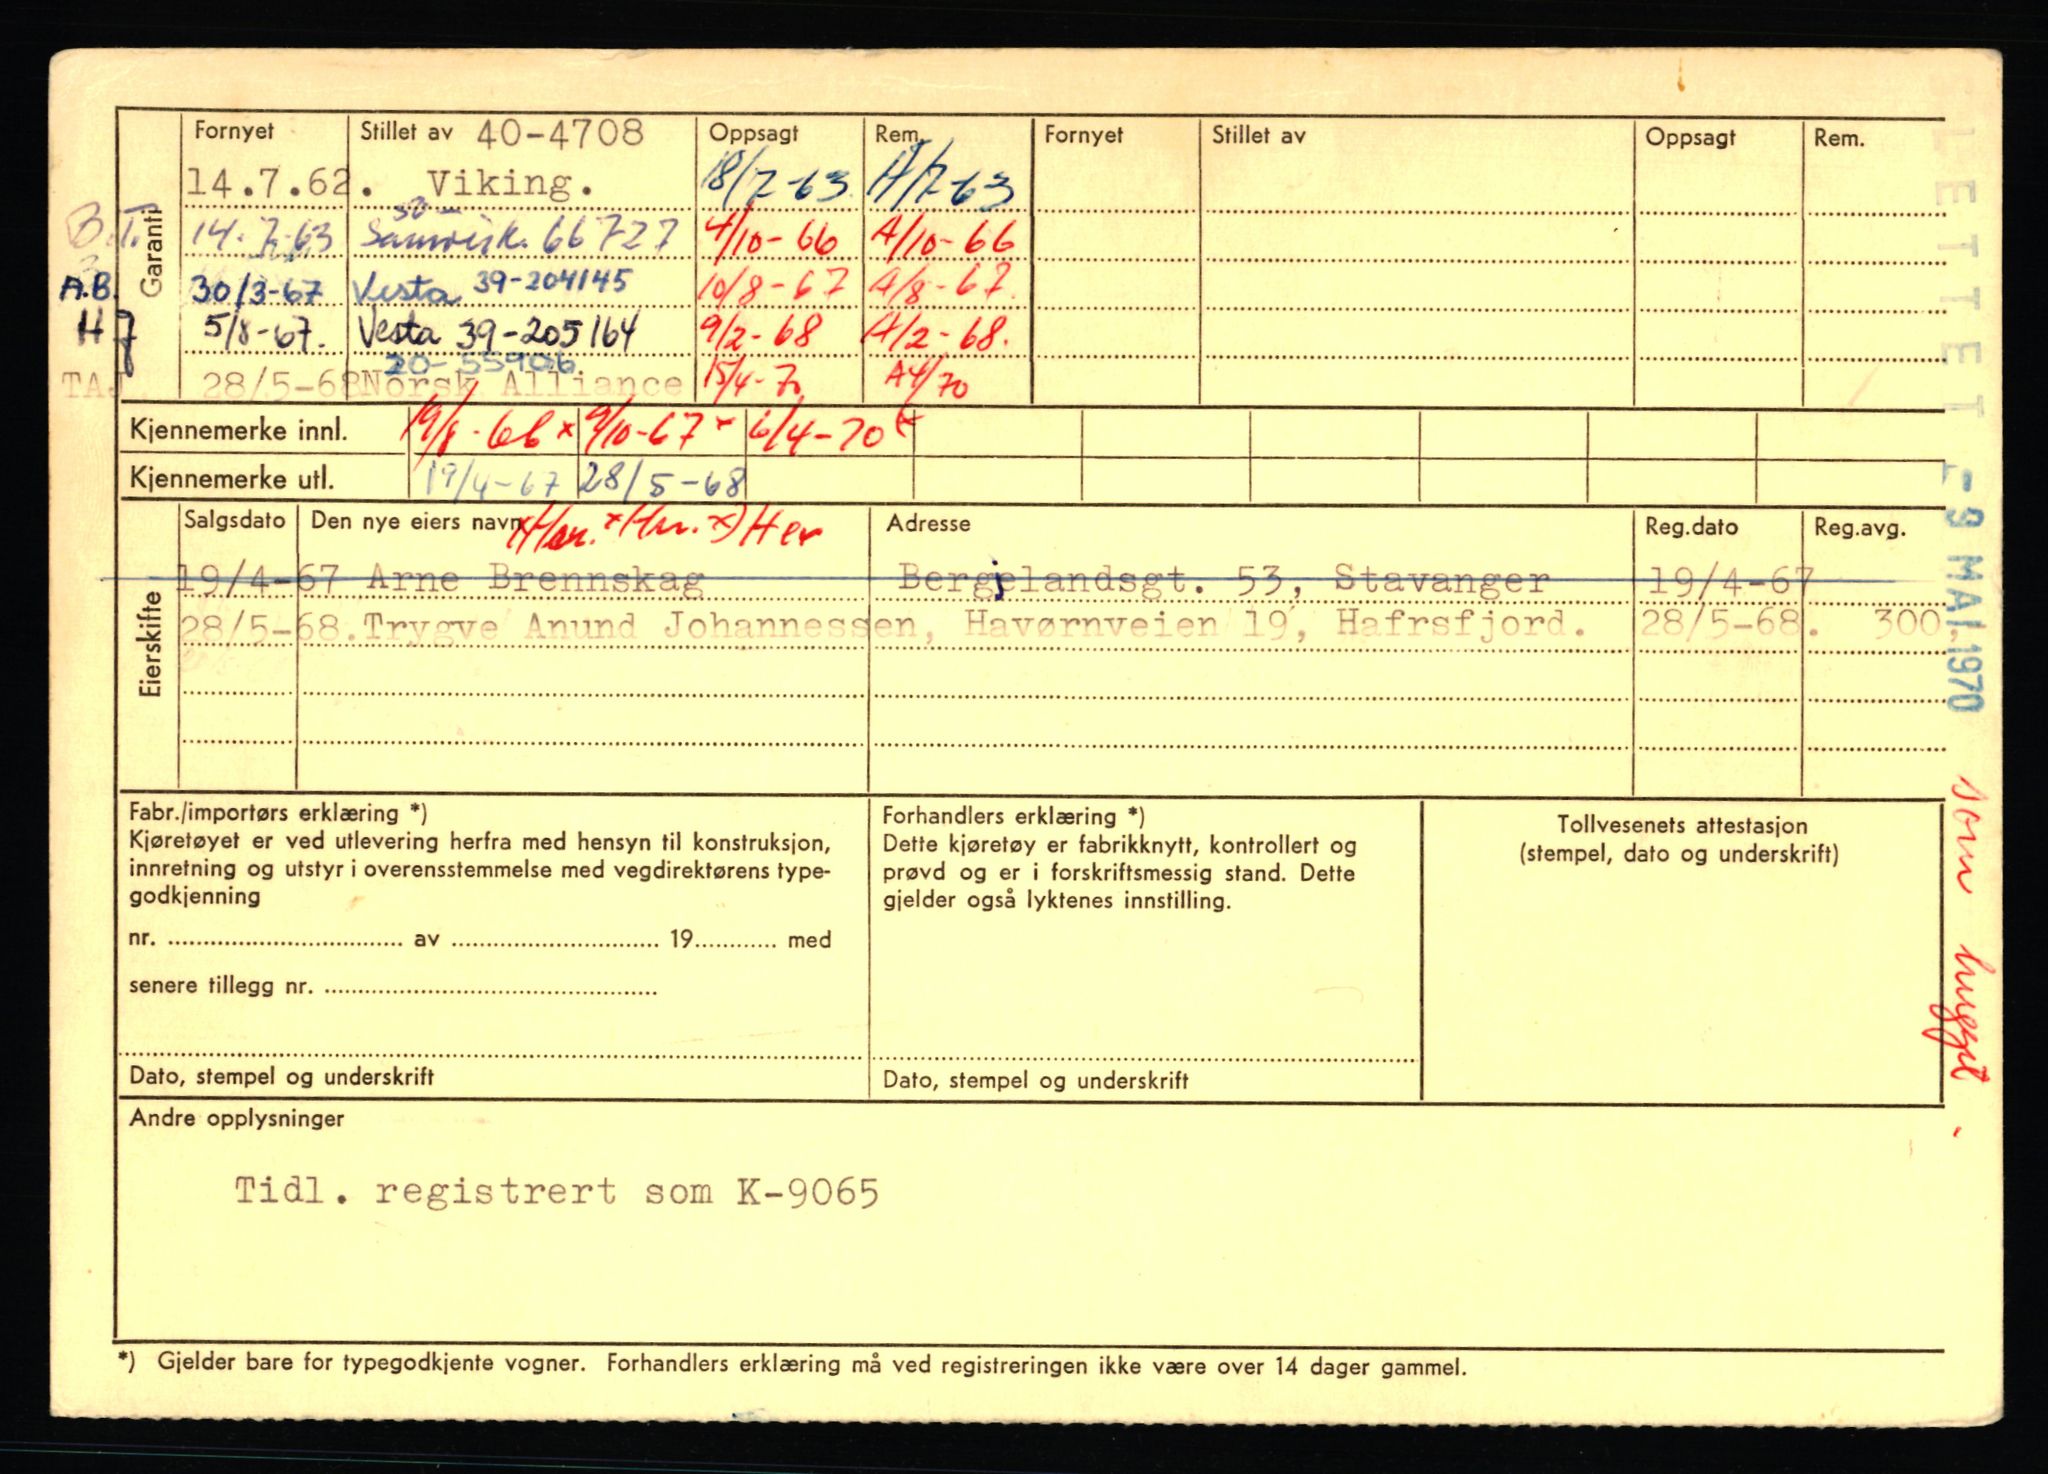 Garanti
Fornyet Stillet av 40-4708 Oppsagt Rem. Fornyet Stillet av Oppsagt Rem.
14.7.62. Viking. 18/7-63. A/7-63
B.T. 14.7.63 66727 4/10-66 A/10-66
A.B. 30/3-67 Vesta 39-204145 10/8-67 A/8-67.
HJ 5/8-67. Vesta 39-205164 9/2-68 A/2-68.
20-55906
TAJ 28/5-68 Norsk Alliance 15/4-70 A4/70
Kjennemerke innl. 19/8-66 x 9/10-67 x 6/4-70 x
Kjennemerke utl. 19/4-67 28/5-68
Eierskifte
Salgsdato Den nye eiers navn x) Her. x) Her. x) Her Adresse Reg.dato Reg.avg.
19/4-67 Arne Brennskag Bergjelandsgt. 53, Stavanger 19/4-67
28/5-68. Trygve Anund Johannessen, Havørnveien 19, Hafrsfjord. 28/5-68. 300,
SLETTET - 9 MAI 1970
som hugget.
Fabr./importørs erklæring *)
Kjøretøyet er ved utlevering herfra med hensyn til konstruksjon,
innretning og utstyr i overensstemmelse med vegdirektørens type-
godkjenning
nr. ........ av ........ 19........ med
senere tillegg nr. ........
Dato, stempel og underskrift
Forhandlers erklæring *)
Dette kjøretøy er fabrikknytt, kontrollert og
prøvd og er i forskriftsmessig stand. Dette
gjelder også lyktenes innstilling.
Dato, stempel og underskrift
Tollvesenets attestasjon
(stempel, dato og underskrift)
Andre opplysninger
Tidl. registrert som K-9065
*) Gjelder bare for typegodkjente vogner. Forhandlers erklæring må ved registreringen ikke være over 14 dager gammel.